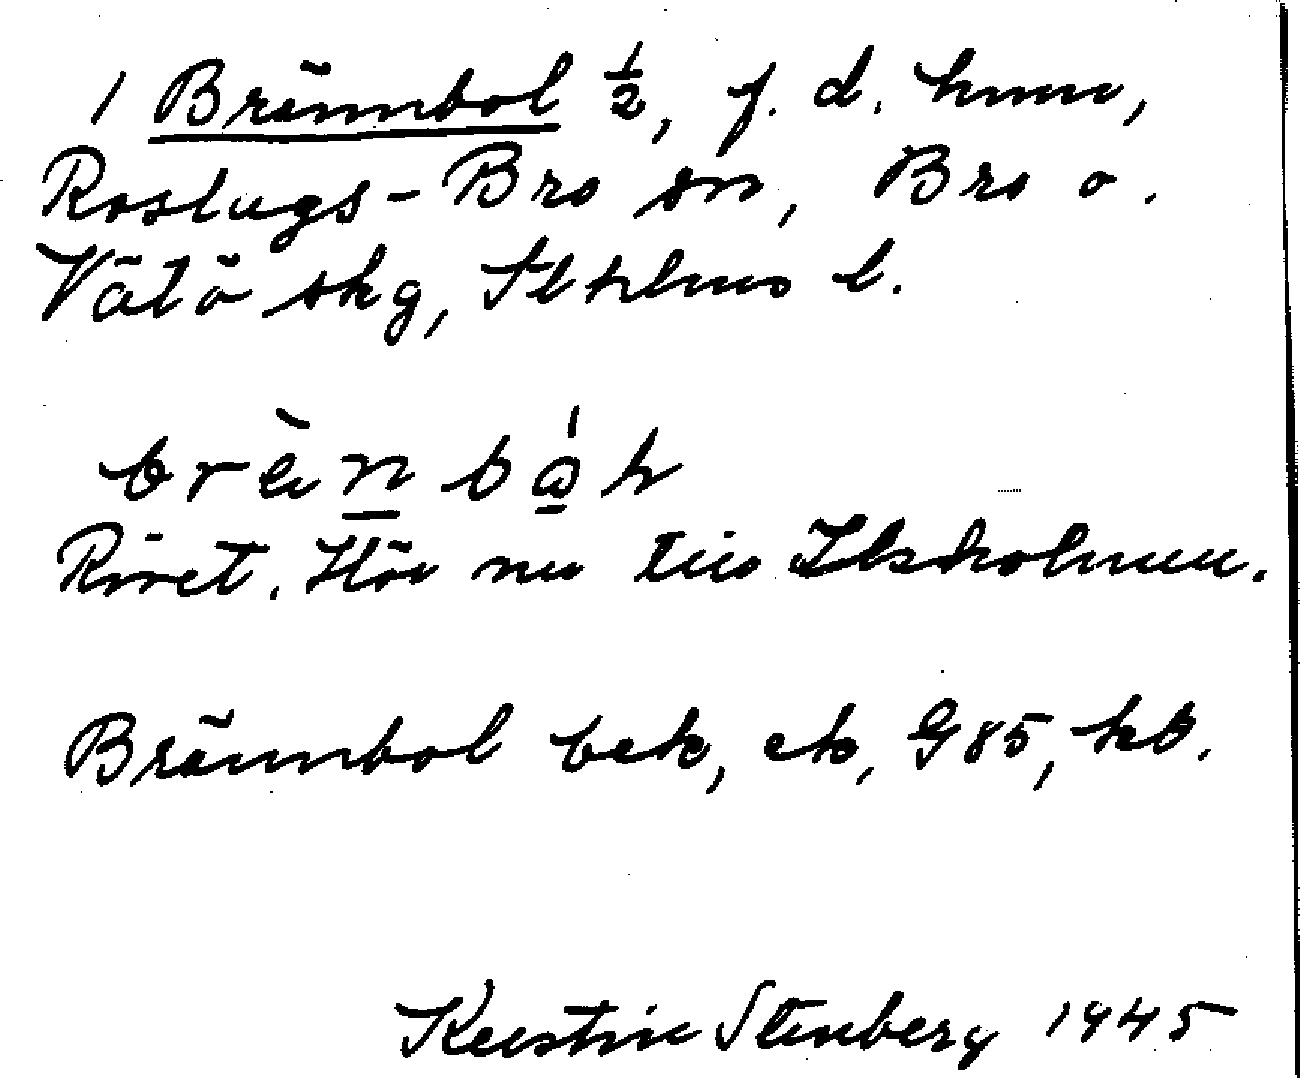 1 Brännbol ½, f. d. hmn,
Roslags-Bro sn, Bro o.
Vätö skg, Sthlms l.
Rivet. Hör nu till Ilsholmen.
Brännbol bek, ek, G85, kb.
Kerstin Stenberg 1945